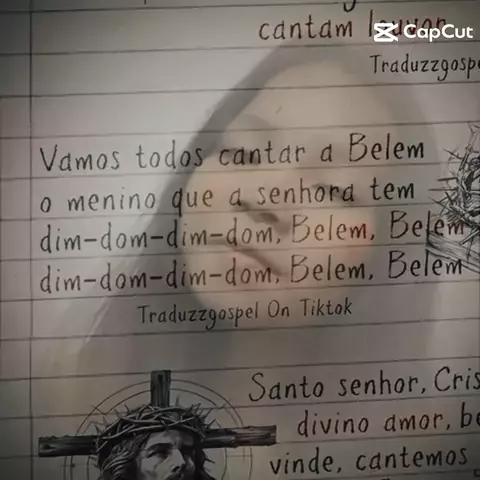 cantam louvor
CapCut
Traduzzgospe
Vamos todos cantar a Belem
o menino que a senhora tem
dim-dom-dim-dom, Belem, Belem
dim-dom-dim-dom, Belem, Belem
Traduzzgospel On Tiktok
Santo senhor, Cris
divino amor, be
vinde, cantemos